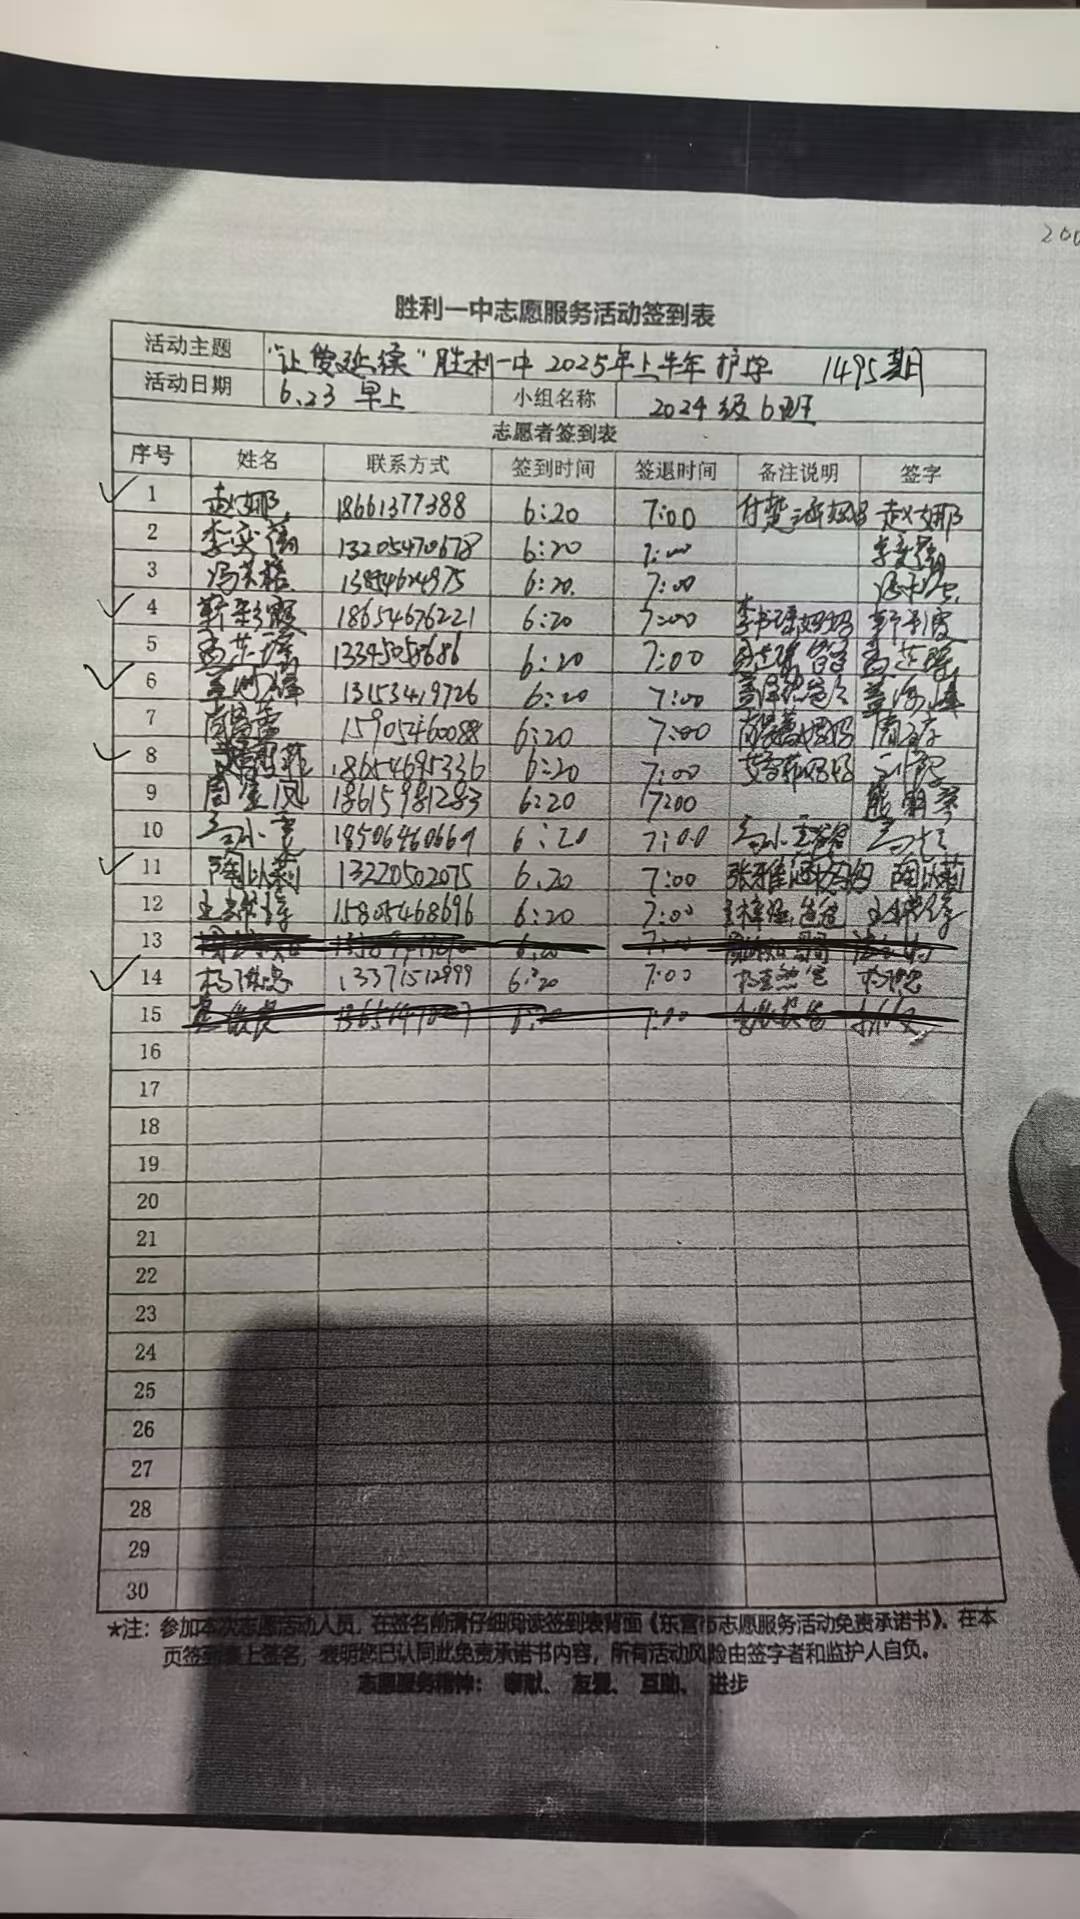 200
胜利一中志愿服务活动签到表
活动主题 "让爱延续"胜利一中2025年上半年护学 1495期
活动日期 6.23 早上 小组名称 2024级6班
志愿者签到表
序号 姓名 联系方式 签到时间 签退时间 备注说明 签字
1 赵娜 18661377388 6:20 7:00 付楚涵妈妈 赵娜
2 13205470678 6:20 7:00
3 13854624975 6:20. 7:00
4 靳彩霞 18654676221 6:20 7:00 李书瑶妈妈 靳彩霞
5 孟芷瑶 13345058686 6:20 7:00 孟芷瑶爸爸 孟芷瑶
6 盖 13153419726 6:20 7:00 盖泽 爸爸 盖
7 15905460088 6:20 7:00 妈妈
8 18654695336 6:20 7:00 妈妈
9 周 凤 18615981283 6:20 7:00
10 马小雯 18506460669 6:20 7:00 马小雯爸爸 马
11 陶以莉 13220502075 6.20 7:00 张雅涵妈妈 陶以莉
12 王 15805468696 6:20 7:00 王梓 爸爸 王
13 6:20 7:00
14 杨 忠 13371512999 6:20 7:00 杨 忠
15 6:20 7:00
16
17
18
19
20
21
22
23
24
25
26
27
28
29
30
*注：参加本次志愿活动人员，在签名前请仔细阅读签到表背面《东营市志愿服务活动免责承诺书》。在本
页签到表上签名，表明您已认同此免责承诺书内容，所有活动风险由签字者和监护人自负。
志愿服务精神：奉献、友爱、互助、进步